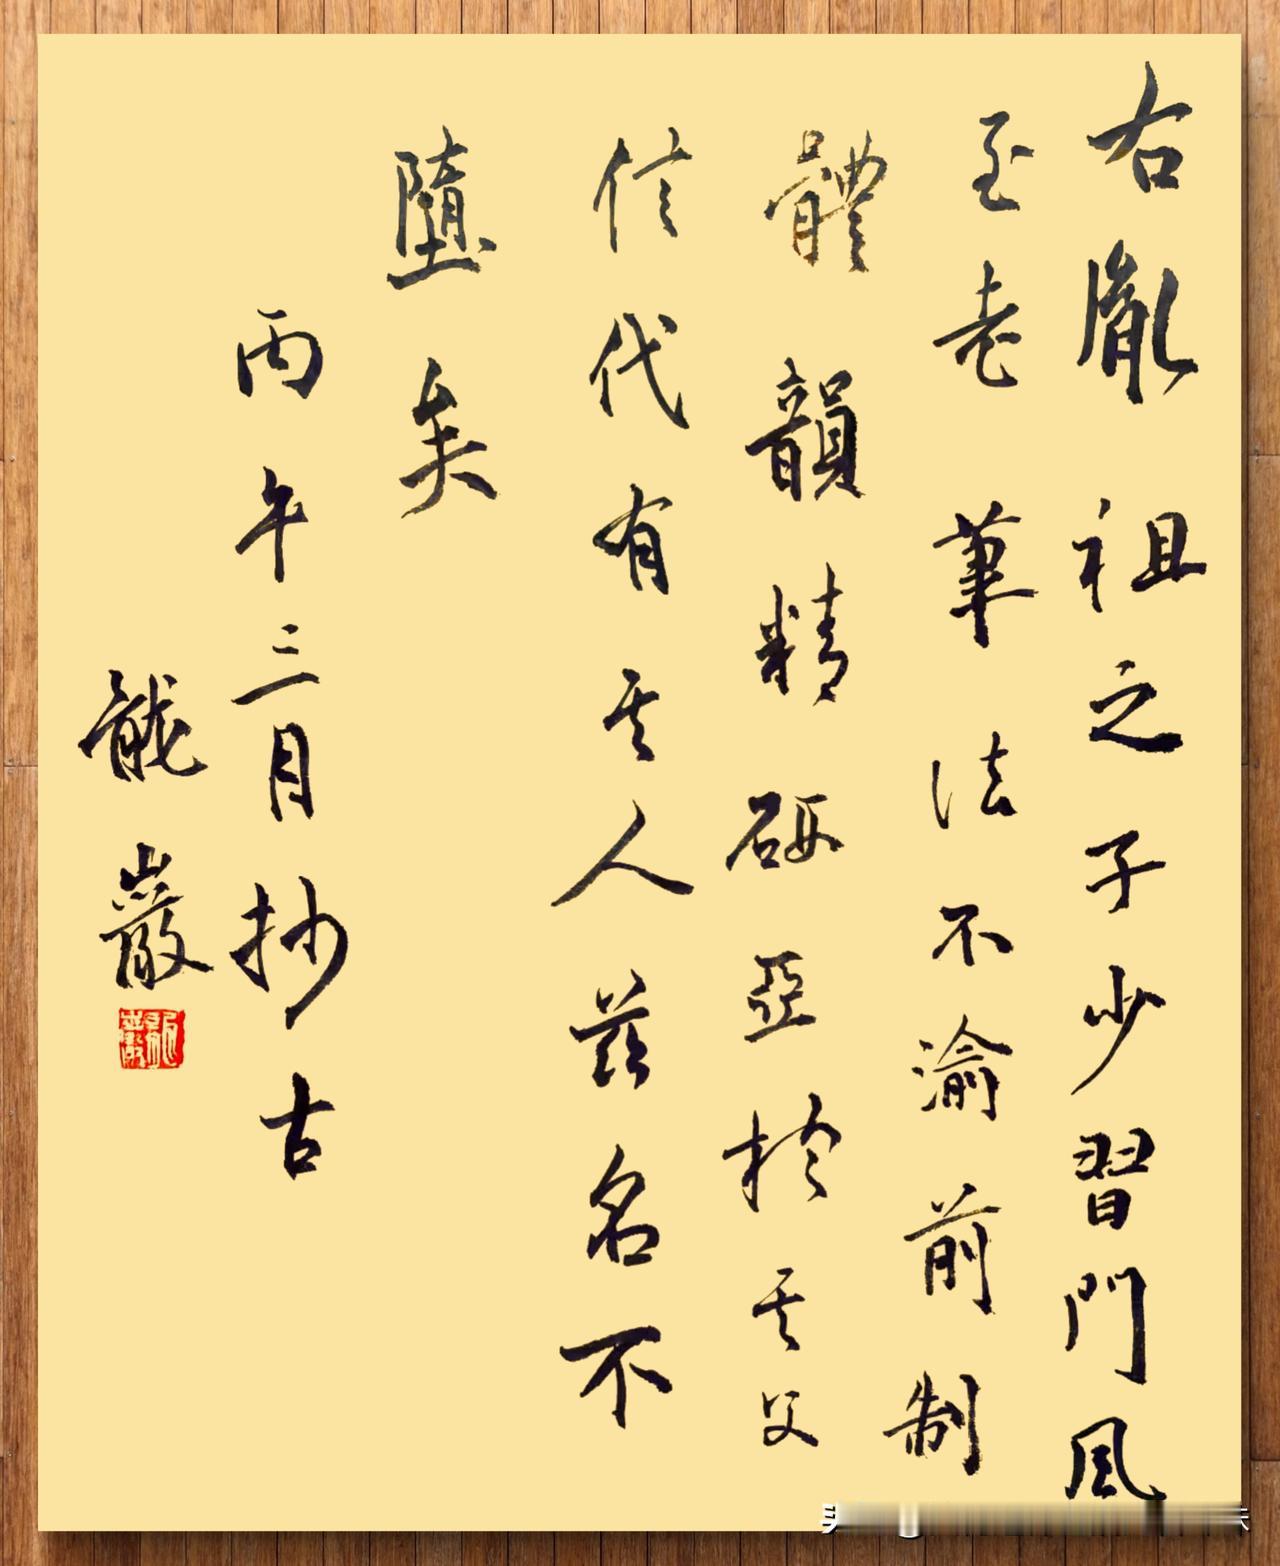 右胤祖之子少習門風
至老筆法不渝前制
體韻精研亞於其父
信代有其人茲名不
墮矣
丙午三月抄古
龍巖
龍巖